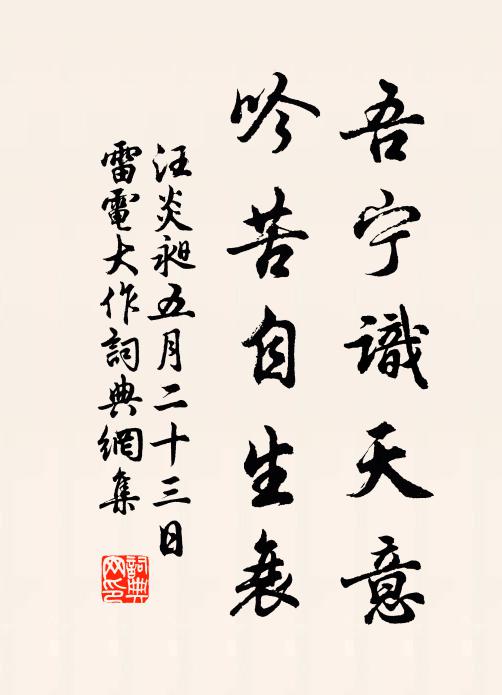 吾宁識天意
吟苦自生衰
汪炎昶五月二十三日
雷電大作詞典網集
詞典网印